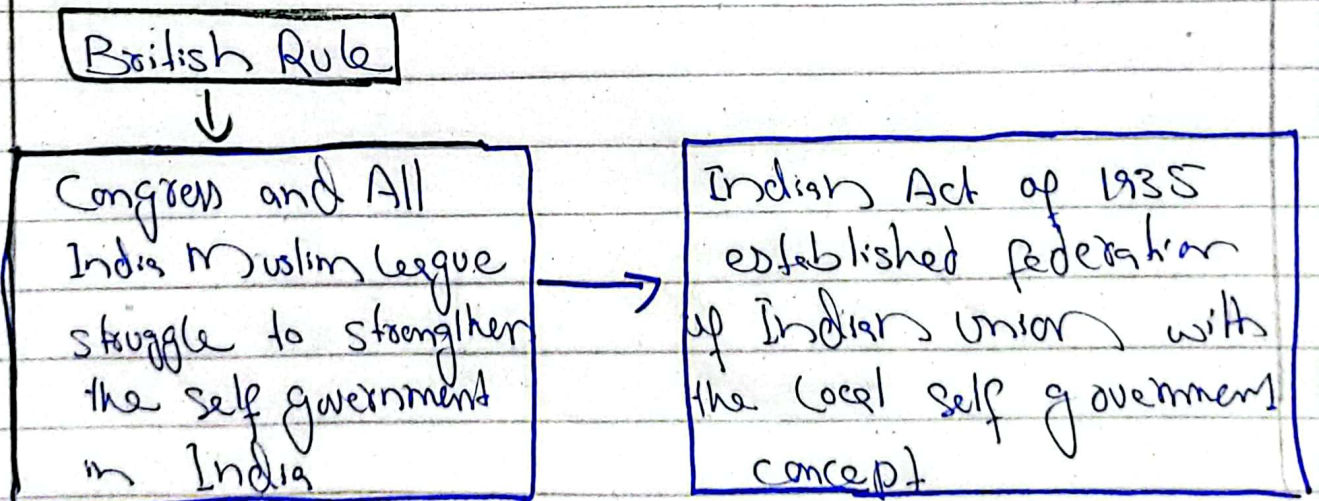 British Rule
Congress and All
India Muslim League
struggle to strengthen
the self government
in India
Indian Act of 1935
established federation
of Indian union with
the local self government
concept